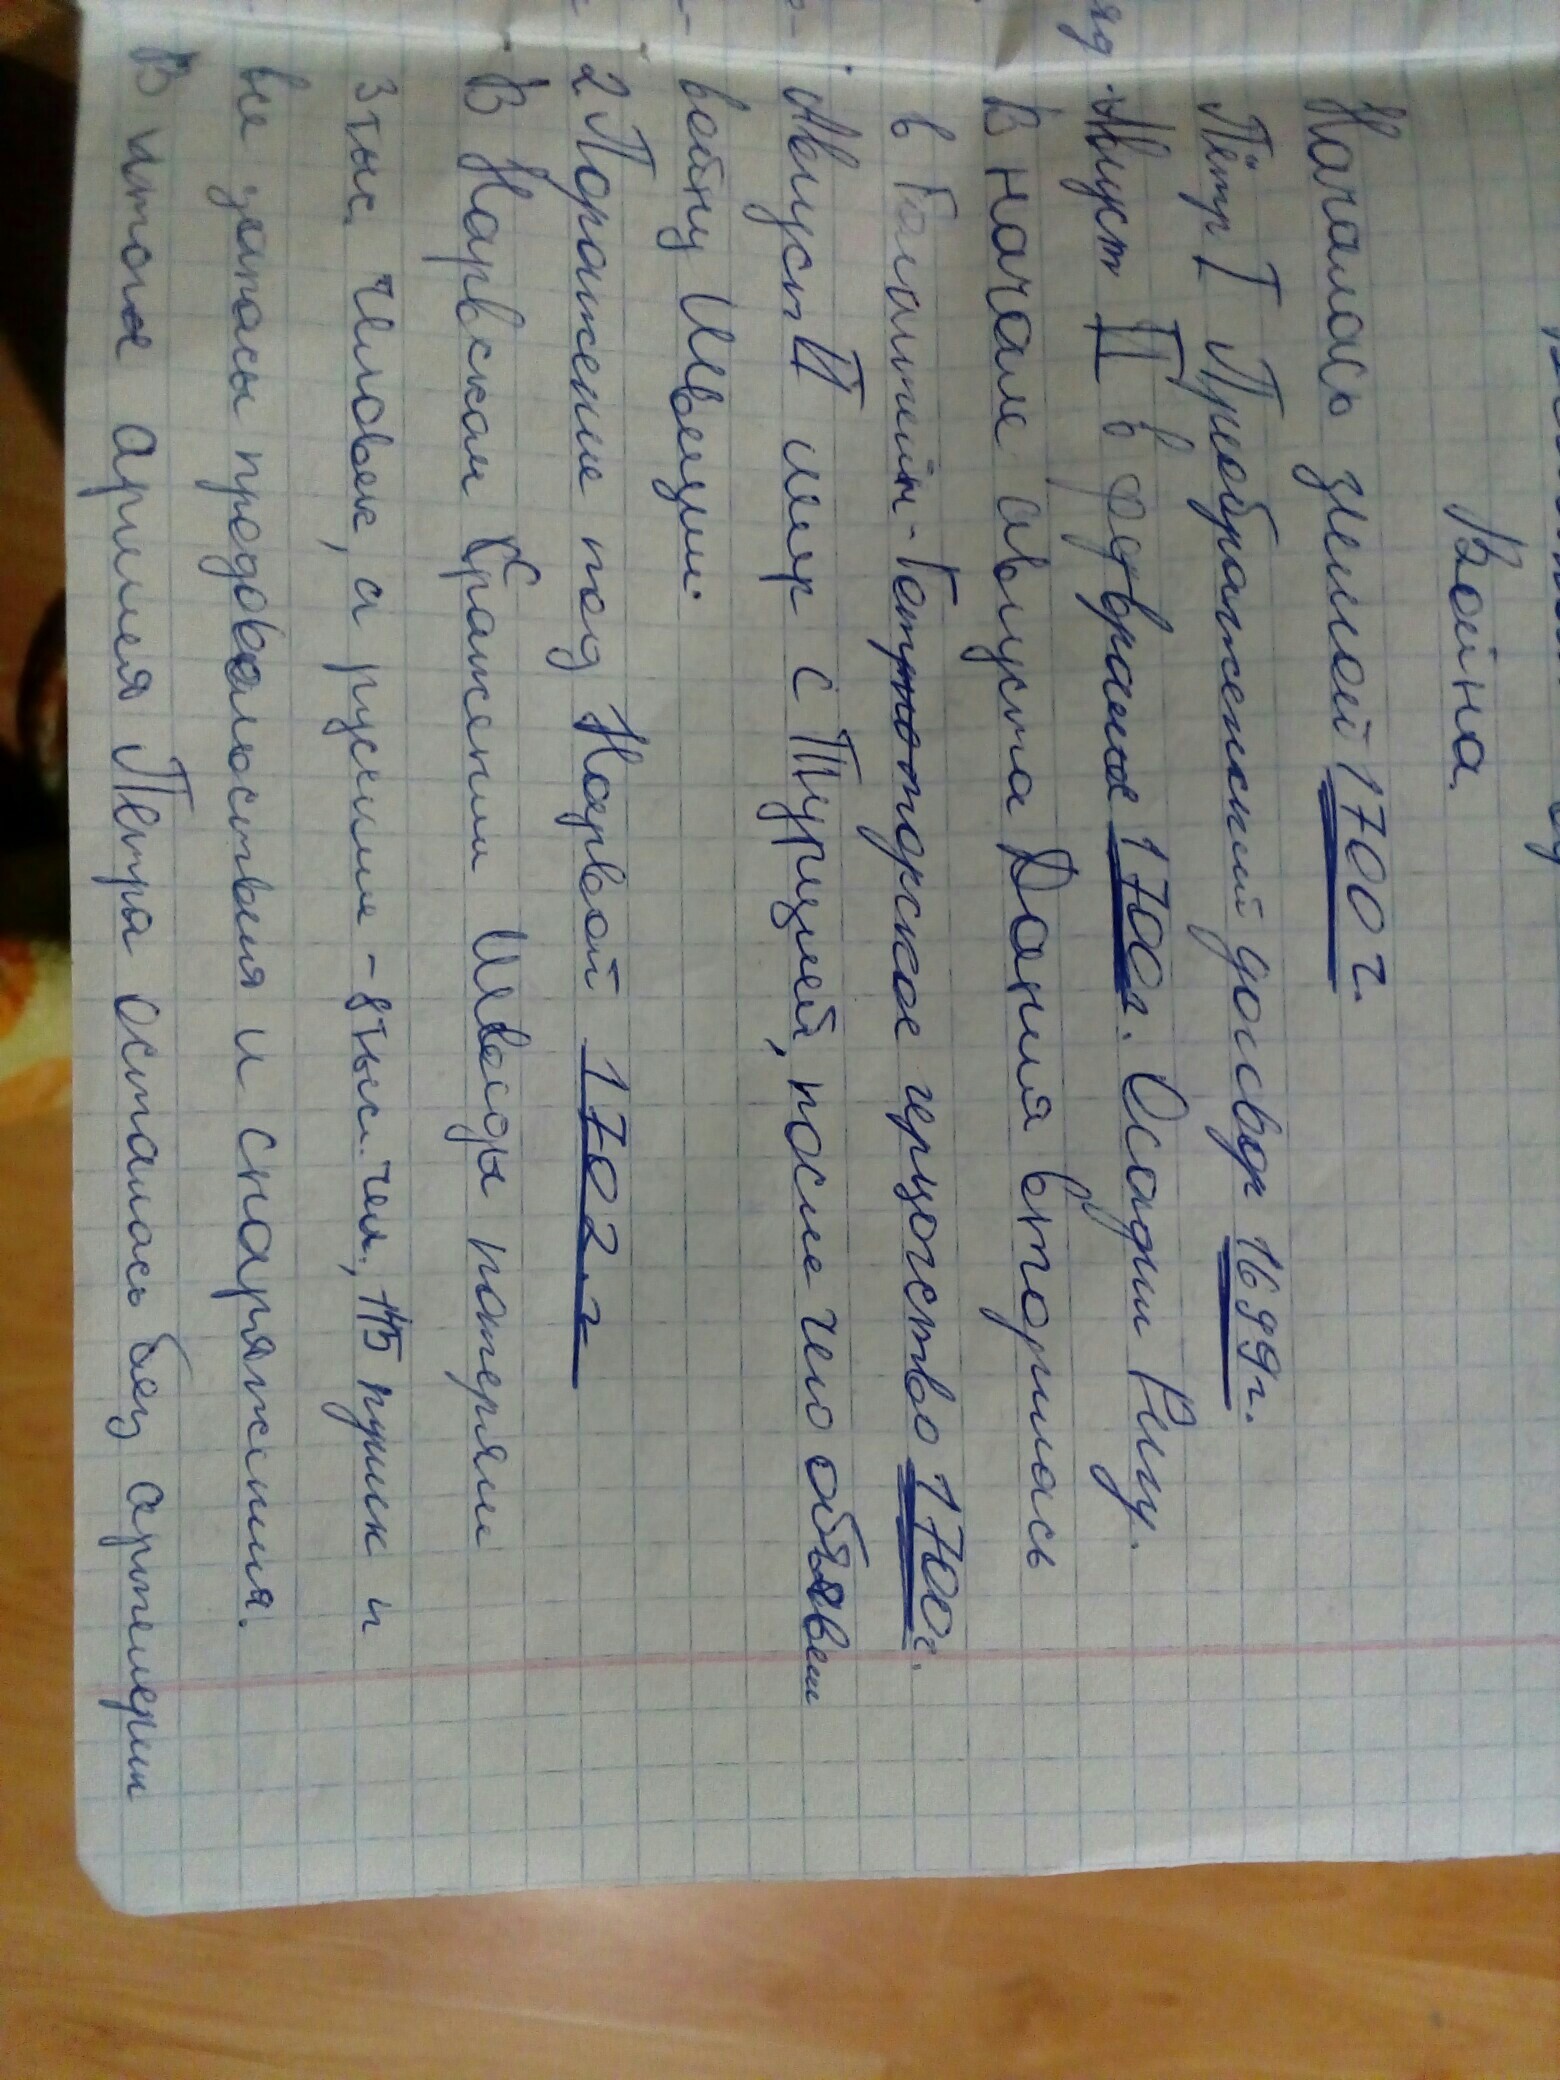 Война.
Началась зимой 1700 г.
Пётр I Преображенский договор 1699г.
Август II в феврале 1700г. Осадил Ригу.
В начале августа Дания вторглась
в Гольштейн-Готторпское герцогство 1700г.
Август II мир с Турцией, после чего объявил
войну Швеции.
2 Поражение под Нарвой 1702 г
В Нарвском Сражении Шведы потеряли
3 тыс. человек, а русские - 8 тыс. чел., 145 пушек и
все запасы продовальствия и снаряжения.
В итоге армия Петра осталась без артилерии